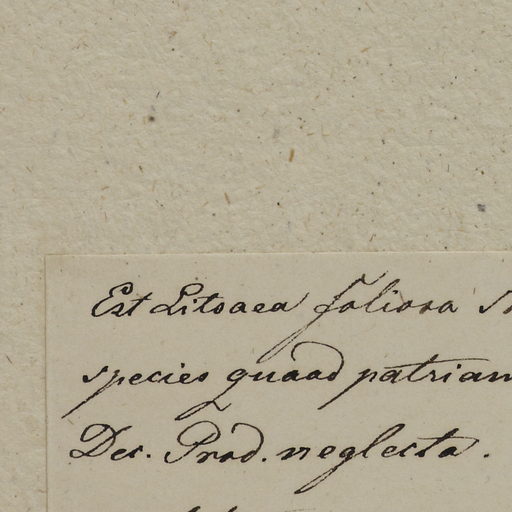 Est Litsaea foliosa
species quoad patriam
Dec. Prod. neglecta.